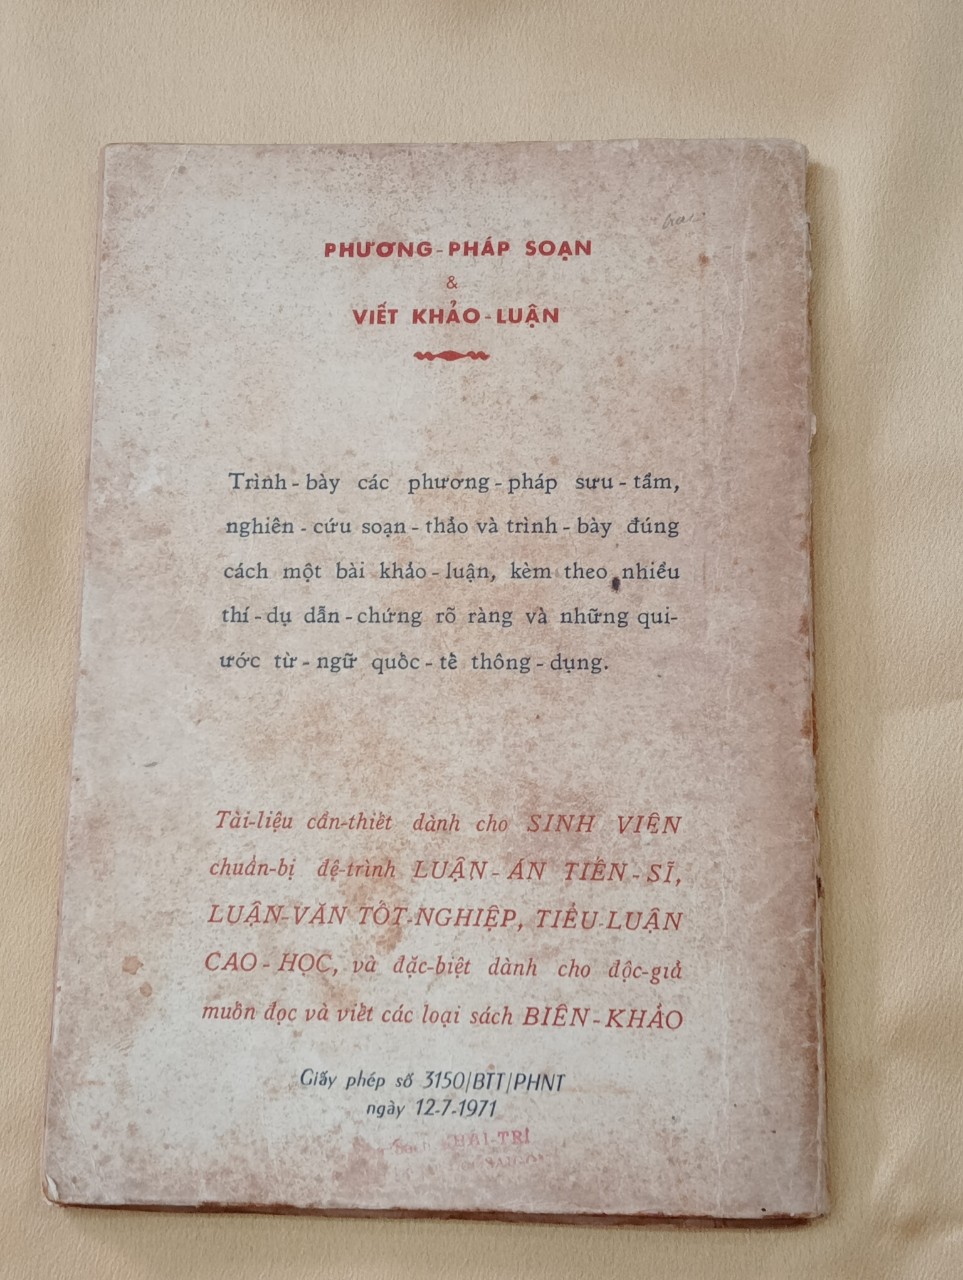 PHƯƠNG-PHÁP SOẠN
&
VIẾT KHẢO-LUẬN
Trình-bày các phương-pháp sưu-tầm,
nghiên-cứu soạn-thảo và trình-bày đúng
cách một bài khảo-luận, kèm theo nhiều
thí-dụ dẫn-chứng rõ ràng và những qui-
ước từ-ngữ quốc-tề thông-dụng.
Tài-liệu cần-thiềt dành cho SINH VIÊN
chuẩn-bị đệ-trình LUẬN-ÁN TIẾN-SĨ,
LUẬN-VĂN TỐT-NGHIỆP, TIỂU-LUẬN
CAO-HỌC, và đặc-biệt dành cho độc-giả
muồn đọc và viềt các loại sách BIÊN-KHẢO
Giấy phép số 3150/BTT/PHNT
ngày 12-7-1971
KHAI-TRÍ